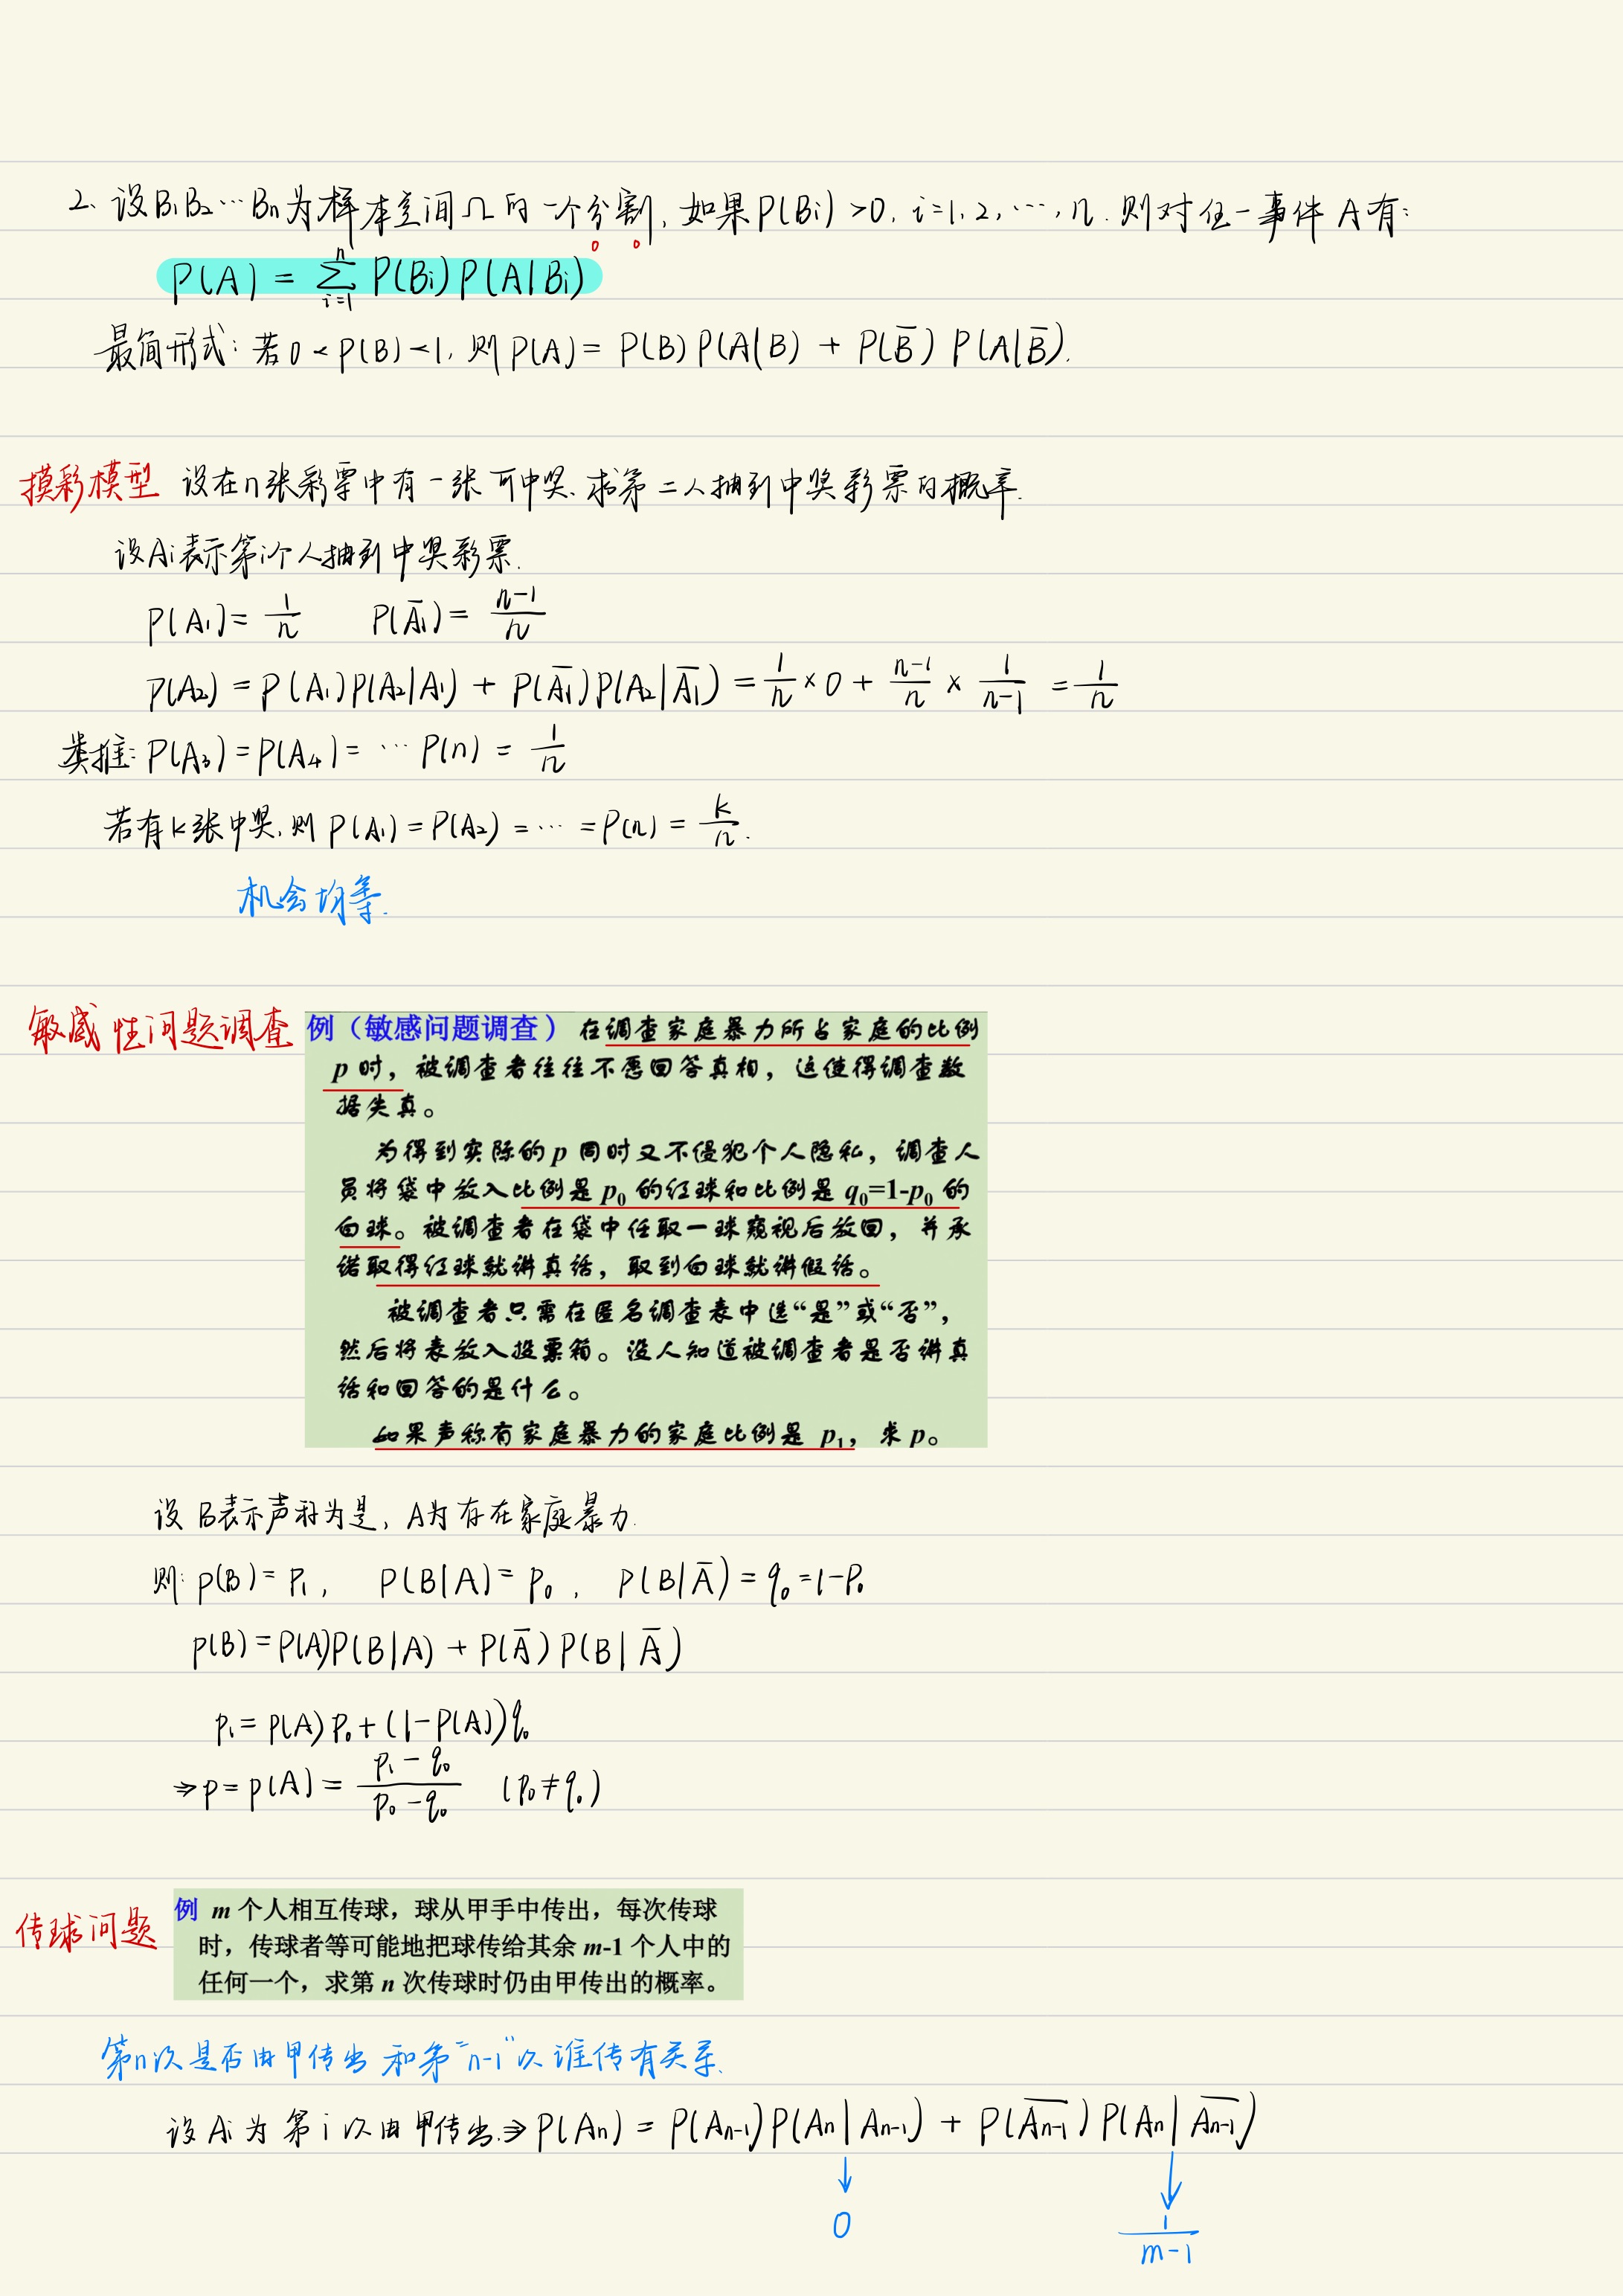 2. 设B₁B₂…Bn为样本空间Ω的一个分割, 如果P(Bi)>0, i=1,2,…,n. 则对任一事件 A 有:
P(A) = \sum_{i=1}^{n} P(Bi)P(A|Bi)
最简形式: 若0<P(B)<1, 则P(A)= P(B)P(A|B) + P(B̄) P(A|B̄).
摸彩模型 设在n张彩票中有一张可中奖. 求第二人抽到中奖彩票的概率.
设Ai表示第i个人抽到中奖彩票.
P(A₁)= 1/n P(Ā₁)= (n-1)/n
P(A₂) = P(A₁)P(A₂|A₁) + P(Ā₁)P(A₂|Ā₁) = 1/n × 0 + (n-1)/n × 1/(n-1) = 1/n
类推: P(A₃)=P(A₄)= … P(n) = 1/n
若有k张中奖, 则 P(A₁)=P(A₂)=…=P(n)= k/n.
机会均等.
敏感性问题调查
例（敏感问题调查）在调查家庭暴力所占家庭的比例
p 时，被调查者往往不愿回答真相，这使得调查数
据失真。
为得到实际的 p 同时又不侵犯个人隐私，调查人
员将袋中放入比例是 p₀ 的红球和比例是 q₀=1-p₀ 的
白球。被调查者在袋中任取一球窥视后放回，并承
诺取得红球就讲真话，取到白球就讲假话。
被调查者只需在匿名调查表中选“是”或“否”，
然后将表放入投票箱。没人知道被调查者是否讲真
话和回答的是什么。
如果声称有家庭暴力的家庭比例是 p₁，求 p。
设 B表示声称为是, A为存在家庭暴力.
则: P(B)=P₁, P(B|A)= P₀, P(B|Ā)=q₀=1-P₀
P(B)=P(A)P(B|A) + P(Ā)P(B|Ā)
P₁= P(A)P₀+(1-P(A))q₀
⇒p=P(A)= (P₁-q₀)/(P₀-q₀) (P₀≠q₀)
传球问题
例 m 个人相互传球，球从甲手中传出，每次传球
时，传球者等可能地把球传给其余 m-1 个人中的
任何一个，求第 n 次传球时仍由甲传出的概率。
第n次是否由甲传出 和第“n-1”次谁传有关系.
设 Ai 为 第 i 次由甲传出.⇒P(An) = P(An-1)P(An|An-1) + P(\overline{An-1})P(An|\overline{An-1})
↓ ↓
0 1/(m-1)